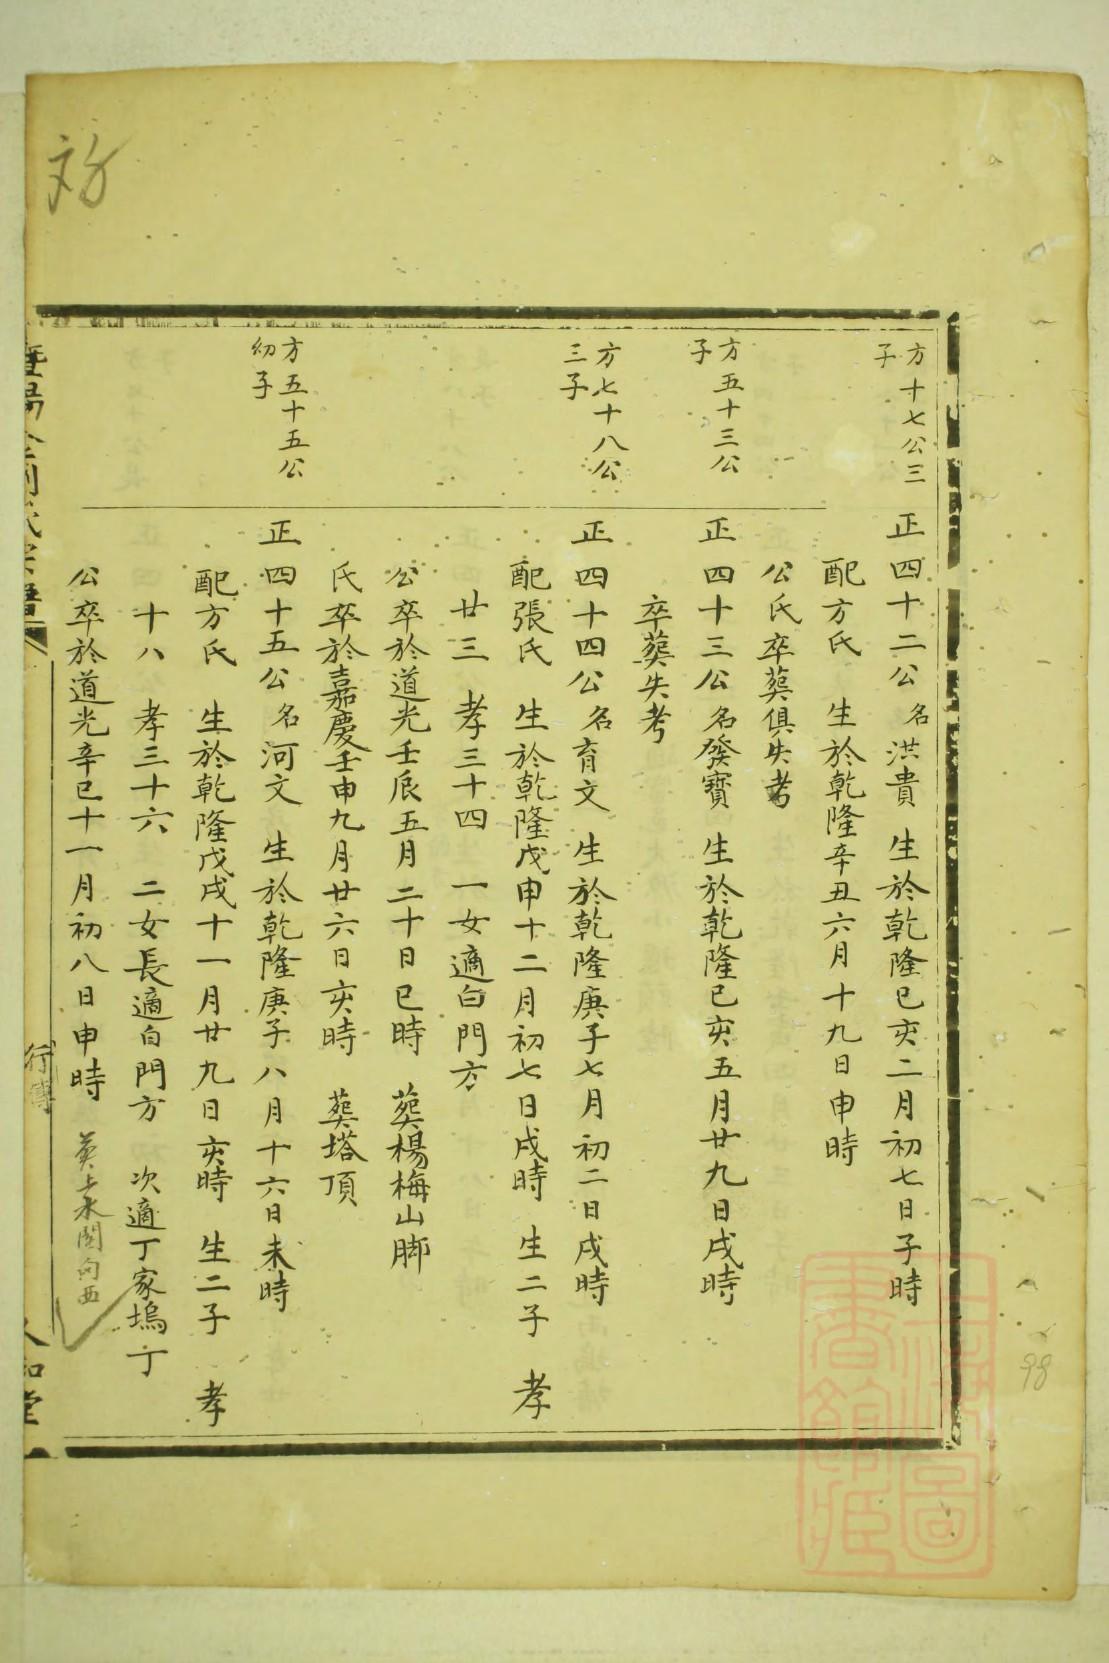 方十七公三
子
正四十二公 名洪貴 生於乾隆己亥二月初七日子時
配方氏 生於乾隆辛丑六月十九日申時
公氏卒葬俱失考
方五十三公
子
正四十三公 名發寶 生於乾隆己亥五月廿九日戌時
卒葬失考
方七十八公
三子
正四十四公 名育文 生於乾隆庚子七月初二日戌時
配張氏 生於乾隆戊申十二月初七日戌時 生二子 孝
廿三 孝三十四 一女適白門方
公卒於道光壬辰五月二十日巳時 葬楊梅山脚
氏卒於嘉慶壬申九月廿六日亥時 葬塔頂
方五十五公
幼子
正四十五公 名河文 生於乾隆庚子八月十六日未時
配方氏 生於乾隆戊戌十一月廿九日亥時 生二子 孝
十八 孝三十六 二女長適白門方 次適丁家塢丁
公卒於道光辛巳十一月初八日申時 向西
行傳
98